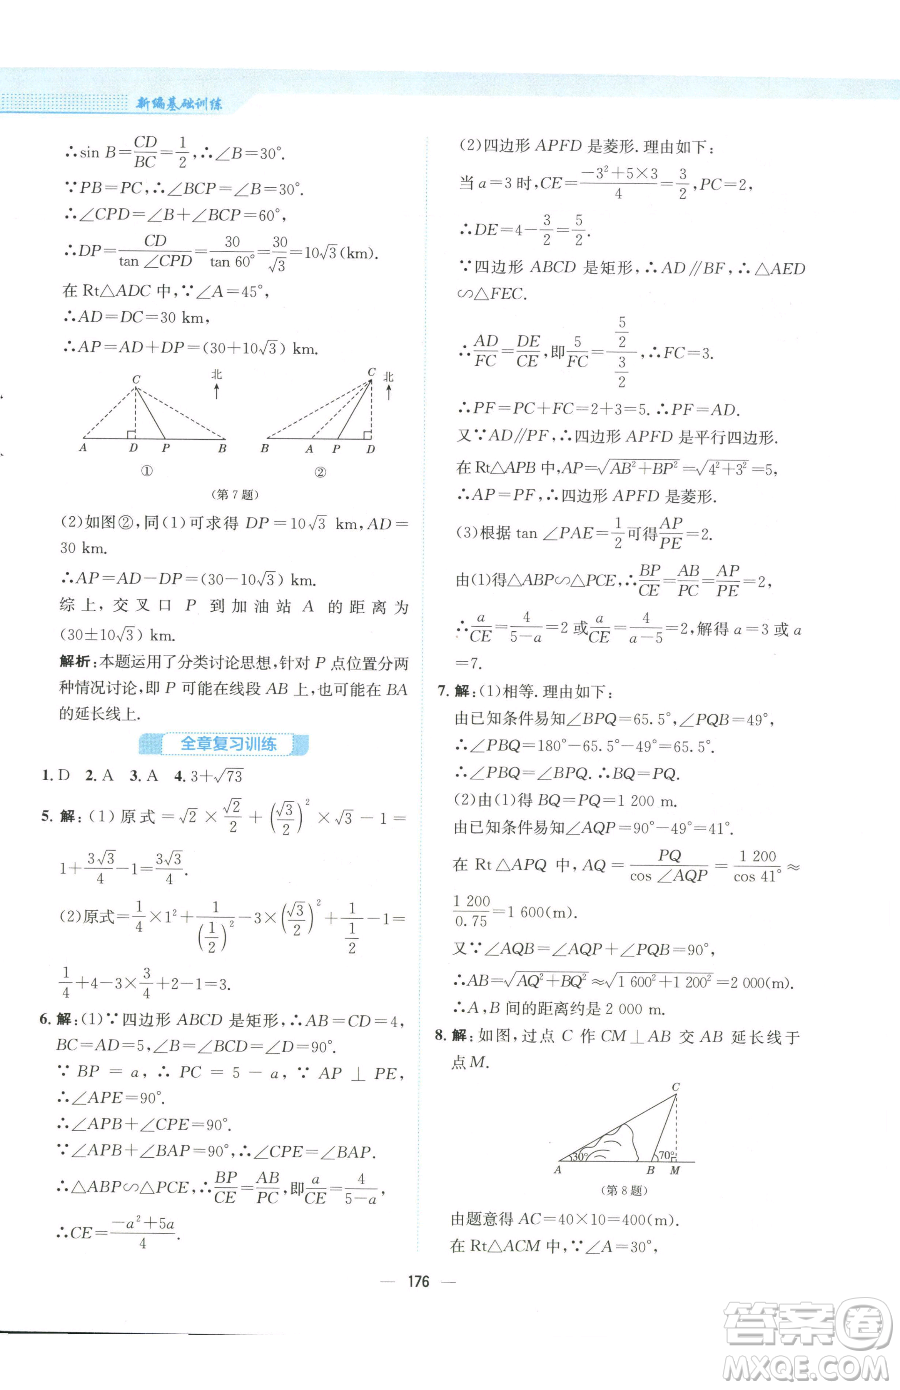 新编基础训练
∴sin B=CD/BC=1/2,∴∠B=30°.
∵PB=PC,∴∠BCP=∠B=30°.
∴∠CPD=∠B+∠BCP=60°,
∴DP=CD/tan∠CPD=30/tan 60°=30/√3=10√3(km).
在 Rt△ADC 中,∵∠A=45°,
∴AD=DC=30 km,
∴AP=AD+DP=(30+10√3)km.
C 北 A D P B
①
C 北 B A P D
②
(第 7 题)
(2)如图②,同(1)可求得 DP=10√3 km,AD=
30 km.
∴AP=AD-DP=(30-10√3)km.
综上,交叉口 P 到加油站 A 的距离为
(30±10√3)km.
解析:本题运用了分类讨论思想,针对 P 点位置分两
种情况讨论,即 P 可能在线段 AB 上,也可能在 BA
的延长线上.
全章复习训练
1. D 2. A 3. A 4. 3+√73
5. 解:(1)原式=√2×√2/2+(√3/2)²×√3-1=
1+3√3/4-1=3√3/4.
(2)原式=1/4×1²+1/(1/2)²-3×(√3/2)²+1/(1/2)=
1/4+4-3×3/4+2-1=3.
6. 解:(1)∵四边形 ABCD 是矩形,∴AB=CD=4,
BC=AD=5,∠B=∠BCD=90°.
∵ BP = a,∴ PC = 5 - a,∵ AP ⊥ PE,
∴∠APE=90°.
∴∠APB+∠CPE=90°.
∵∠APB+∠BAP=90°,∴∠CPE=∠BAP.
∴△ABP∽△PCE,∴BP/CE=AB/PC,即a/CE=4/(5-a),
∴CE=(-a²+5a)/4.
(2)四边形 APFD 是菱形. 理由如下:
当 a=3 时,CE=(-3²+5×3)/4=3/2,PC=2,
∴DE=4-3/2=5/2.
∵四边形 ABCD 是矩形,∴AD∥BF,∴△AED
∽△FEC.
∴AD/FC=DE/CE,即5/FC=(5/2)/(3/2),∴FC=3.
∴PF=PC+FC=2+3=5. ∴PF=AD.
又∵AD∥PF,∴四边形 APFD 是平行四边形.
在 Rt△APB 中,AP=√(AB²+BP²)=√(4²+3²)=5,
∴AP=PF,∴四边形 APFD 是菱形.
(3)根据 tan∠PAE=1/2可得AP/PE=2.
由(1)得△ABP∽△PCE,∴BP/CE=AB/PC=AP/PE=2,
∴a/CE=4/(5-a)=2 或a/CE=4/(a-5)=2,解得 a=3 或 a
=7.
7. 解:(1)相等. 理由如下:
由已知条件易知∠BPQ=65.5°,∠PQB=49°,
∴∠PBQ=180°-65.5°-49°=65.5°.
∴∠PBQ=∠BPQ. ∴BQ=PQ.
(2)由(1)得 BQ=PQ=1 200 m.
由已知条件易知∠AQP=90°-49°=41°.
在 Rt△APQ 中,AQ=PQ/cos∠AQP=1 200/cos 41°≈
1 200/0.75=1 600(m).
又∵∠AQB=∠AQP+∠PQB=90°,
∴AB=√(AQ²+BQ²)≈√(1 600²+1 200²)=2 000(m).
∴A,B 间的距离约是 2 000 m.
8. 解:如图,过点 C 作 CM⊥AB 交 AB 延长线于
点M.
C 30° 70° A B M
(第 8 题)
由题意得 AC=40×10=400(m).
在 Rt△ACM 中,∵∠A=30°,
176
答案圈
MXQE.COM